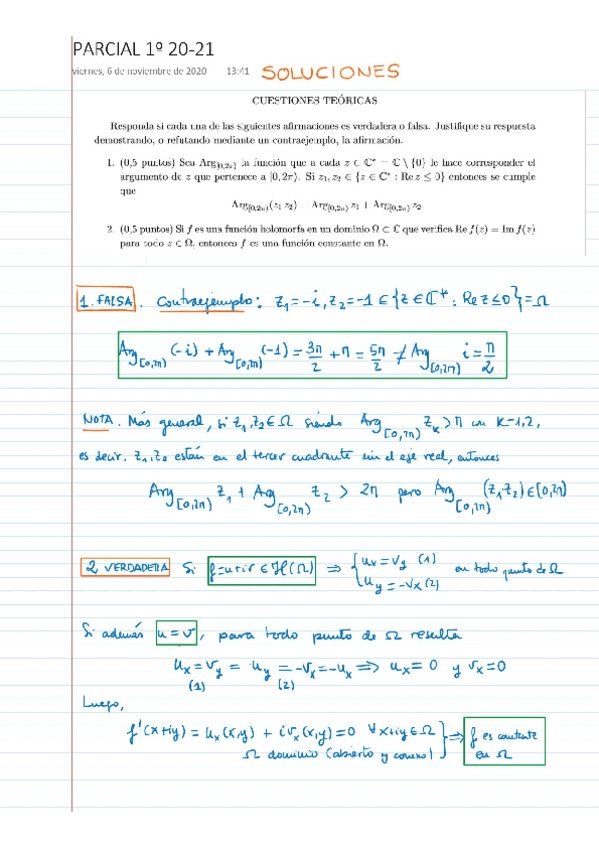 PARCIAL 1º 20-21
viernes, 6 de noviembre de 2020 13:41 SOLUCIONES
CUESTIONES TEÓRICAS
Responda si cada una de las siguientes afirmaciones es verdadera o falsa. Justifique su respuesta
demostrando, o refutando mediante un contraejemplo, la afirmación.
1. (0,5 puntos) Sea Arg[0,2π) la función que a cada z ∈ ℂ* = ℂ \ {0} le hace corresponder el
argumento de z que pertenece a [0, 2π). Si z₁, z₂ ∈ {z ∈ ℂ* : Re z ≤ 0} entonces se cumple
que
Arg[0,2π)(z₁ z₂) = Arg[0,2π) z₁ + Arg[0,2π) z₂
2. (0,5 puntos) Si f es una función holomorfa en un dominio Ω ⊂ ℂ que verifica Re f(z) = Im f(z)
para todo z ∈ Ω, entonces f es una función constante en Ω.
1. FALSA. Contraejemplo: z₁=-i, z₂=-1 ∈ {z ∈ ℂ* : Re z ≤ 0} = Ω
Arg[0,2π) (-i) + Arg[0,2π) (-1) = 3π/2 + π = 5π/2 ≠ Arg[0,2π) i = π/2
NOTA. Más general, si z₁,z₂ ∈ Ω siendo Arg[0,2π) zₖ > π con k=1,2,
es decir, z₁,z₂ están en el tercer cuadrante sin el eje real, entonces
Arg[0,2π) z₁ + Arg[0,2π) z₂ > 2π pero Arg[0,2π) (z₁·z₂) ∈ [0,2π)
2 VERDADERA Si f=u+iv ∈ H(Ω) ⇒ { uₓ = v_y (1) en todo punto de Ω
u_y = -vₓ (2)
Si además u=v, para todo punto de Ω resulta
uₓ = v_y = u_y = -vₓ = -uₓ ⇒ uₓ = 0 y vₓ = 0
(1) (2)
Luego,
f'(x+iy) = uₓ(x,y) + i vₓ(x,y) = 0 ∀ x+iy ∈ Ω } ⇒ f es constante
Ω dominio (abierto y conexo) en Ω